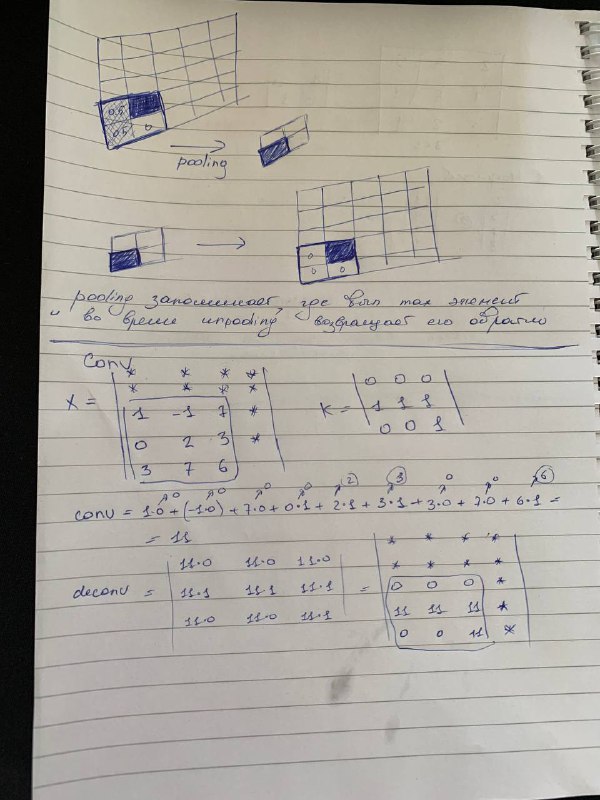 0.5
0.5 0
pooling
0
0 0
pooling запоминает, где был max элемент
и во время unpooling возвращает его обратно
Conv
X = | * * * * |
| * * * * |
| 1 -1 7 * |
| 0 2 3 * |
| 3 7 6 |
K = | 0 0 0 |
| 1 1 1 |
| 0 0 1 |
0 0 0 0 2 3 0 0 6
conv = 1·0 + (-1·0) + 7·0 + 0·1 + 2·1 + 3·1 + 3·0 + 7·0 + 6·1 =
= 11
deconv = | 11·0 11·0 11·0 |
| 11·1 11·1 11·1 |
| 11·0 11·0 11·1 |
= | * * * * |
| * * * * |
| 0 0 0 * |
| 11 11 11 * |
| 0 0 11 * |